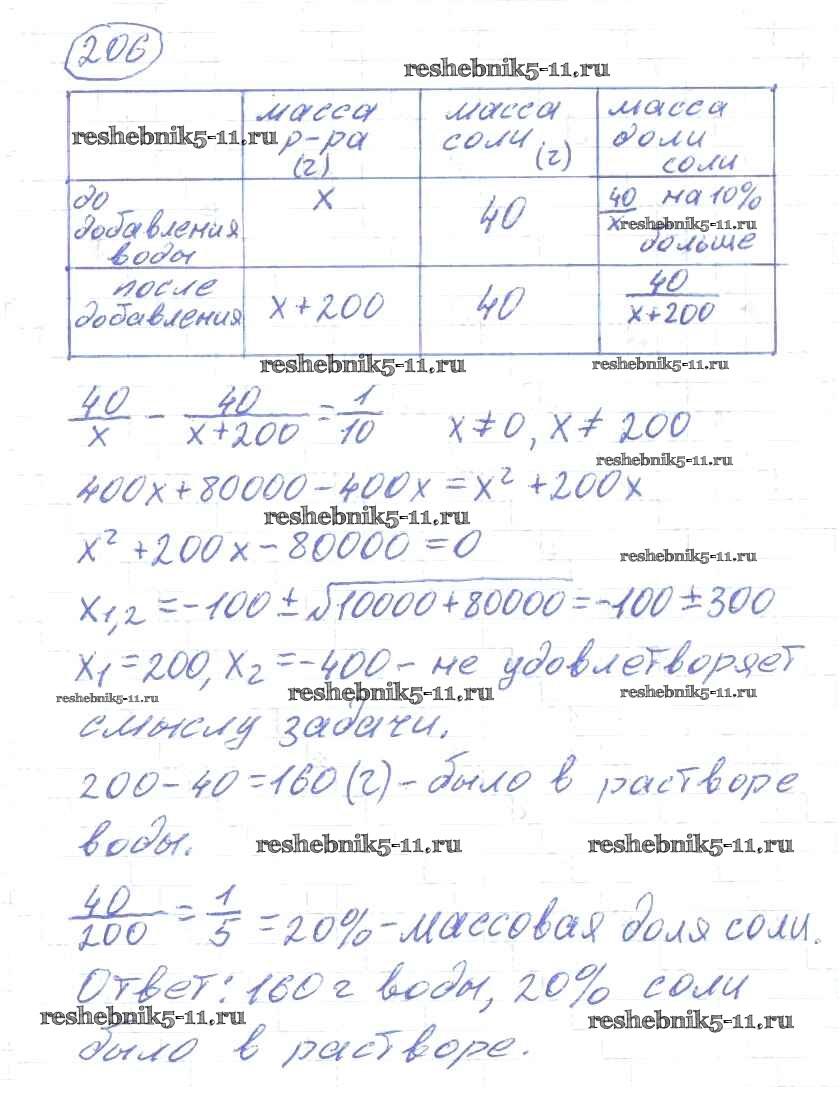 206
reshebnik5-11.ru
reshebnik5-11.ru
масса р-ра (г)
масса соли (г)
масса доли соли
до добавления воды
x
40
40/x на 10% больше
reshebnik5-11.ru
после добавления
x+200
40
40/(x+200)
reshebnik5-11.ru reshebnik5-11.ru
40/x - 40/(x+200) = 1/10 x≠0, x≠ 200
reshebnik5-11.ru
400x+80000-400x=x²+200x
reshebnik5-11.ru
x²+200x-80000=0
reshebnik5-11.ru
x1,2=-100±√10000+80000=-100±300
x1=200, x2=-400- не удовлетворяет
reshebnik5-11.ru reshebnik5-11.ru reshebnik5-11.ru
смыслу задачи.
200-40=160(г)-было в растворе
воды.
reshebnik5-11.ru reshebnik5-11.ru
40/200=1/5=20%-массовая доля соли.
Ответ: 160 г воды, 20% соли
reshebnik5-11.ru reshebnik5-11.ru
было в растворе.